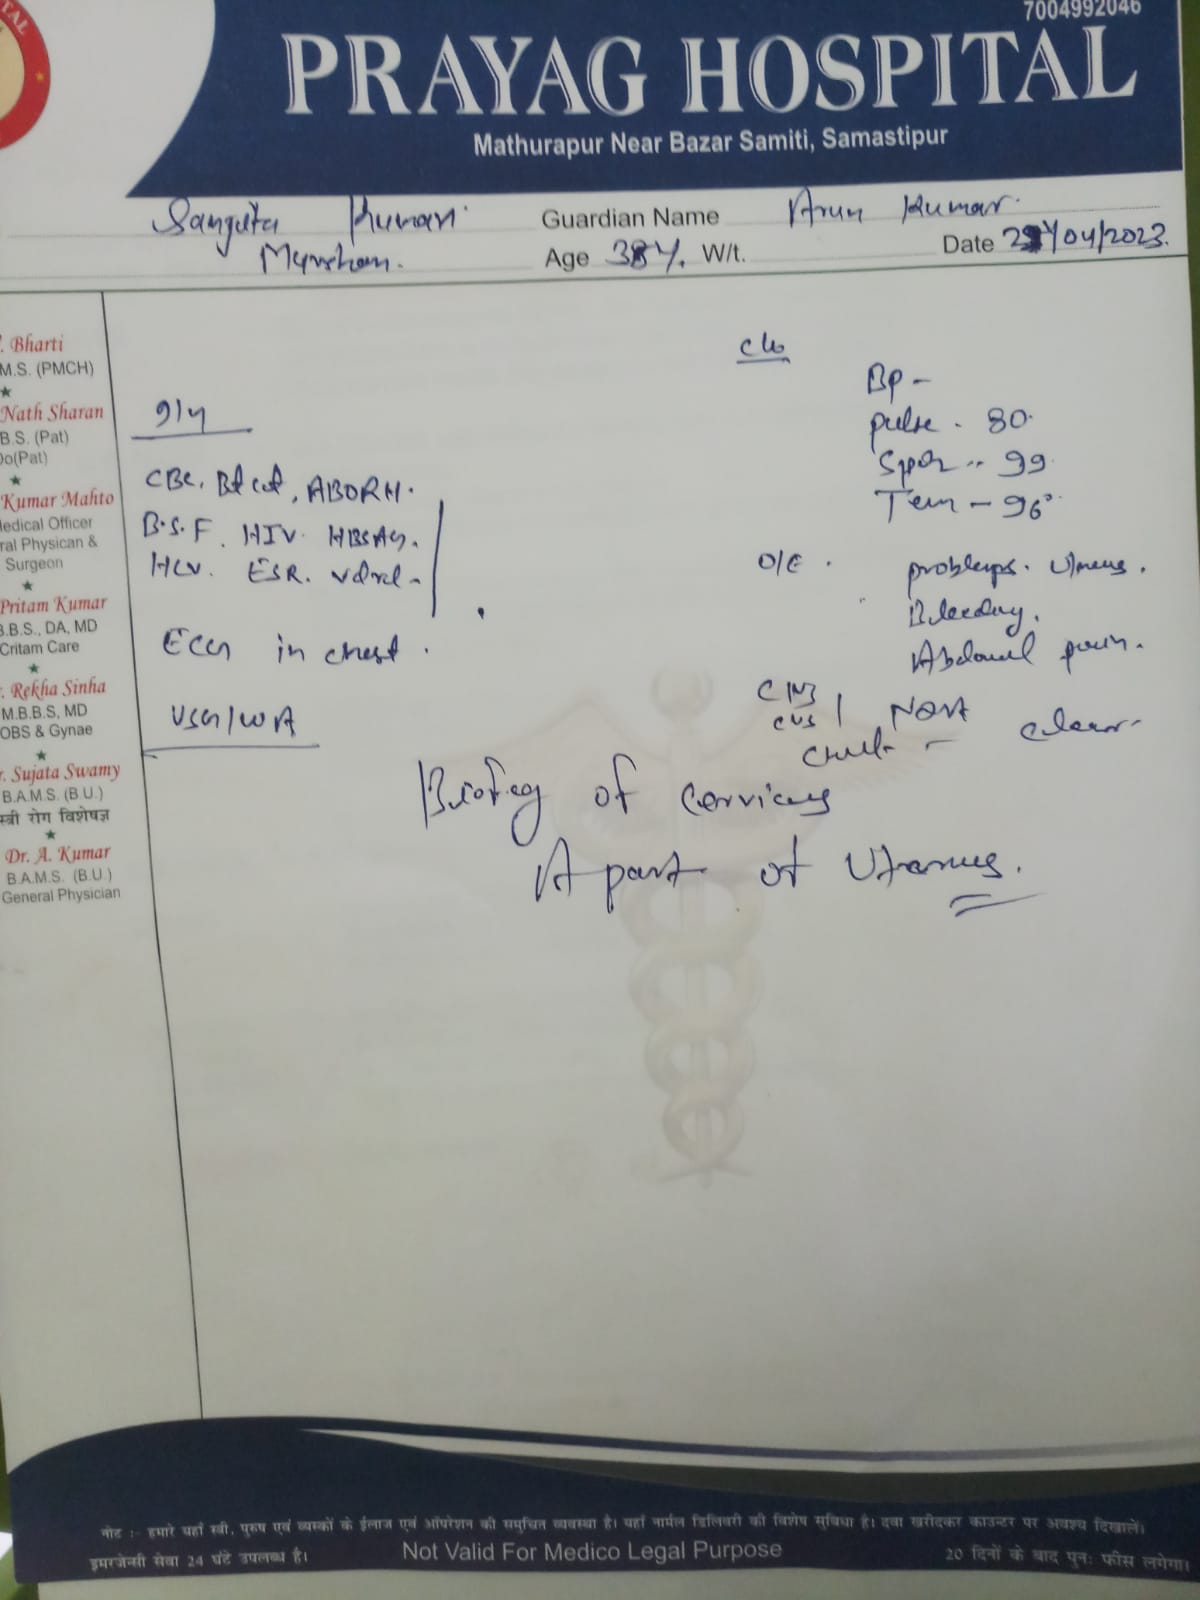 7004992046
PRAYAG HOSPITAL
Mathurapur Near Bazar Samiti, Samastipur
Sangita Kumari Guardian Name Arun Kumar
Age 38Y. W/t. Date 29/04/2023.
c/o
Bp -
pulse - 80
Spo2 - 99
Tem - 96°
CBC, Bt ct, ABORH.
B.S.F. HIV. HBSAg.
HCV. ESR. vdrl -
ECG in chest.
USG/WA
O/E . problems. Utreus.
Bleeding.
Abdomal pain.
CNS
CVS NAD
chest - clear
Biofey of Cervicus
A part of Uterus.
. Bharti
M.S. (PMCH)
Nath Sharan
B.S. (Pat)
Do(Pat)
Kumar Mahto
Medical Officer
ral Physican &
Surgeon
Pritam Kumar
B.B.S., DA, MD
Critam Care
. Rekha Sinha
M.B.B.S, MD
OBS & Gynae
. Sujata Swamy
B.A.M.S. (B.U.)
स्त्री रोग विशेषज्ञ
Dr. A. Kumar
B.A.M.S. (B.U.)
General Physician
नोट :- हमारे यहाँ स्त्री, पुरुष एवं व्यस्कों के ईलाज एवं ऑपरेशन की समुचित व्यवस्था है। यहाँ नार्मल डिलिवरी की विशेष सुविधा है। दवा खरीदकर काउन्टर पर अवश्य दिखालें।
इमरजेन्सी सेवा 24 घंटे उपलब्ध है। Not Valid For Medico Legal Purpose 20 दिनों के बाद पुनः फीस लगेगा।